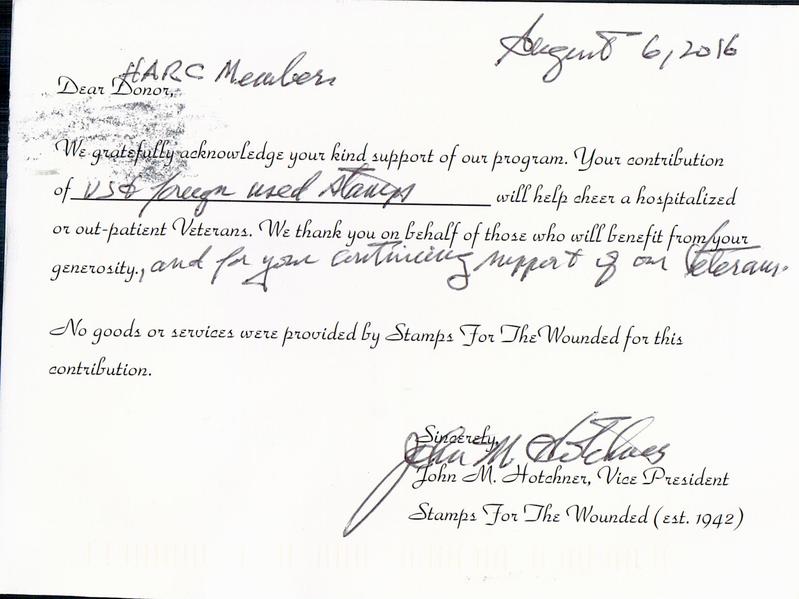 August 6, 2016
HARC Members
Dear Donor,
We gratefully acknowledge your kind support of our program. Your contribution
of US & foreign used stamps will help cheer a hospitalized
or out-patient Veterans. We thank you on behalf of those who will benefit from your
generosity., and for your continuing support of our Veterans.
No goods or services were provided by Stamps For The Wounded for this
contribution.
Sincerely,
John M. Hotchner
John M. Hotchner, Vice President
Stamps For The Wounded (est. 1942)